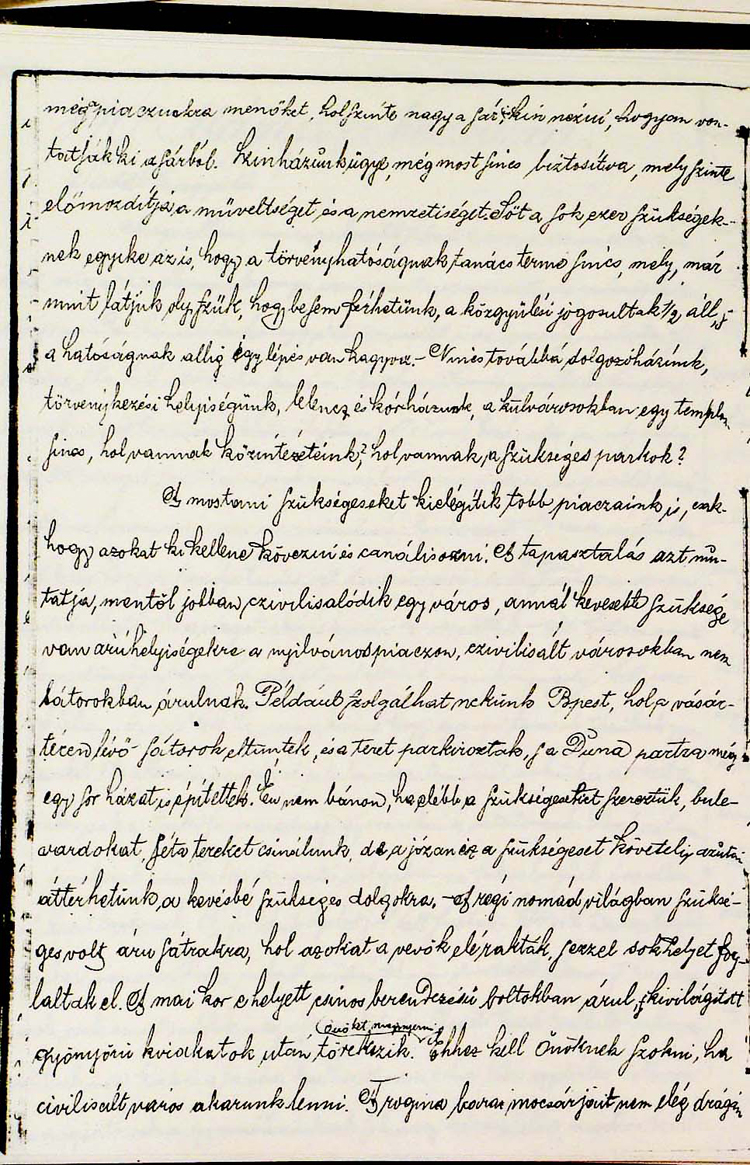 még piaczunkra menőket, hol szinte nagy a sár, s kin nézni, hogyan von-
tatják ki a sárból. Szinházunk ügye, még most sincs biztositva, mely szinte
előmozdítja a műveltséget, és a nemzetiséget. Sőt a sok ezer szükségek-
nek egyike az is, hogy a törvényhatóságnak tanács terme sincs, mely, már
mint látjuk oly szűk, hogy be sem férhetünk, a közgyűlési jogosultak 1/2 áll, s
a hatóságnak allig egy lépés van hagyva. – Nincs továbbá dolgozóházunk,
törvénykezési helyiségünk, lelencz és kórházunk, a külvárosokban egy templom
sincs, hol vannak közintézeteink? hol vannak, a szükséges parkok?
A mostani szükségeseket kielégítik több piaczaink is, csak-
hogy azokat ki kellene kövezni és canálisozni. A tapasztalás azt mu-
tatja, mentől jobban czivilisalódik egy város, annál kevesebb szüksége
van árúhelyiségekre a nyilvános piaczon, czivilisált városokban nem
sátorokban árulnak. Például szolgálhat nekünk Bpest, hol a vásár-
téren lévő sátorok eltüntek, és a teret parkirozták, s a Duna partra még
egy sor házat is építettek. Én nem bánom, ha előbb a szükségeseket szerezzük, bule-
vardokat, séta tereket csinálunk, de a józan ész a szükségeset követeli, azután
áttérhetünk, a kevésbé szükséges dolgokra. – A régi nomád világban szüksé-
ges volt áru sátrakra, hol azokat a vevők elé rakták, s ezzel sok helyet fog-
laltak el. A mai kor e helyett csinos berendezésü boltokban árul, s kivilágított
(önöket megnyerni)
gyönyörü kirakatok után törekszik. Ehhez kell Önöknek szokni, ha
civilisált város akarunk lenni. A Trogina barai mocsárjait nem elég drágán